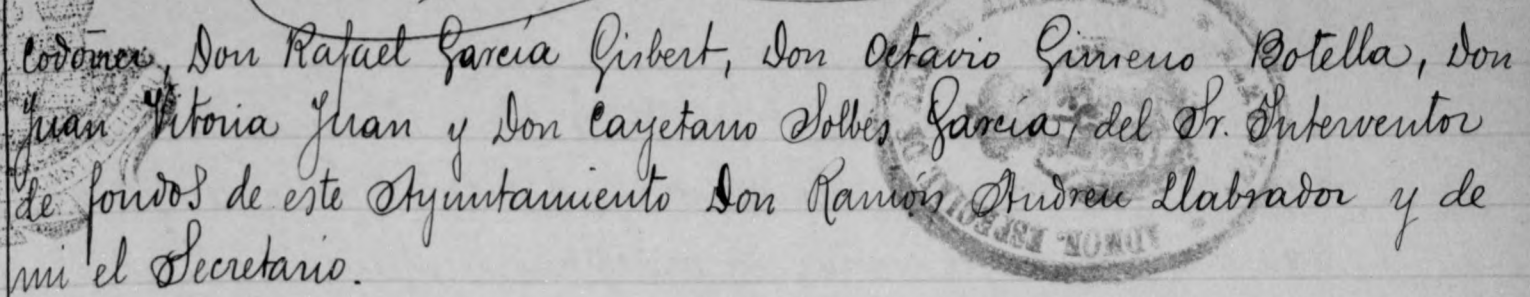 Codoñer, Don Rafael García Gisbert, Don Octavio Gimeno Botella, Don
Juan Vitoria Juan y Don Cayetano Solbes García, del Sr. Interventor
de fondos de este Ayuntamiento Don Ramón Andreu Llabrador y de
mi el Secretario.
ADMON. ESPECI